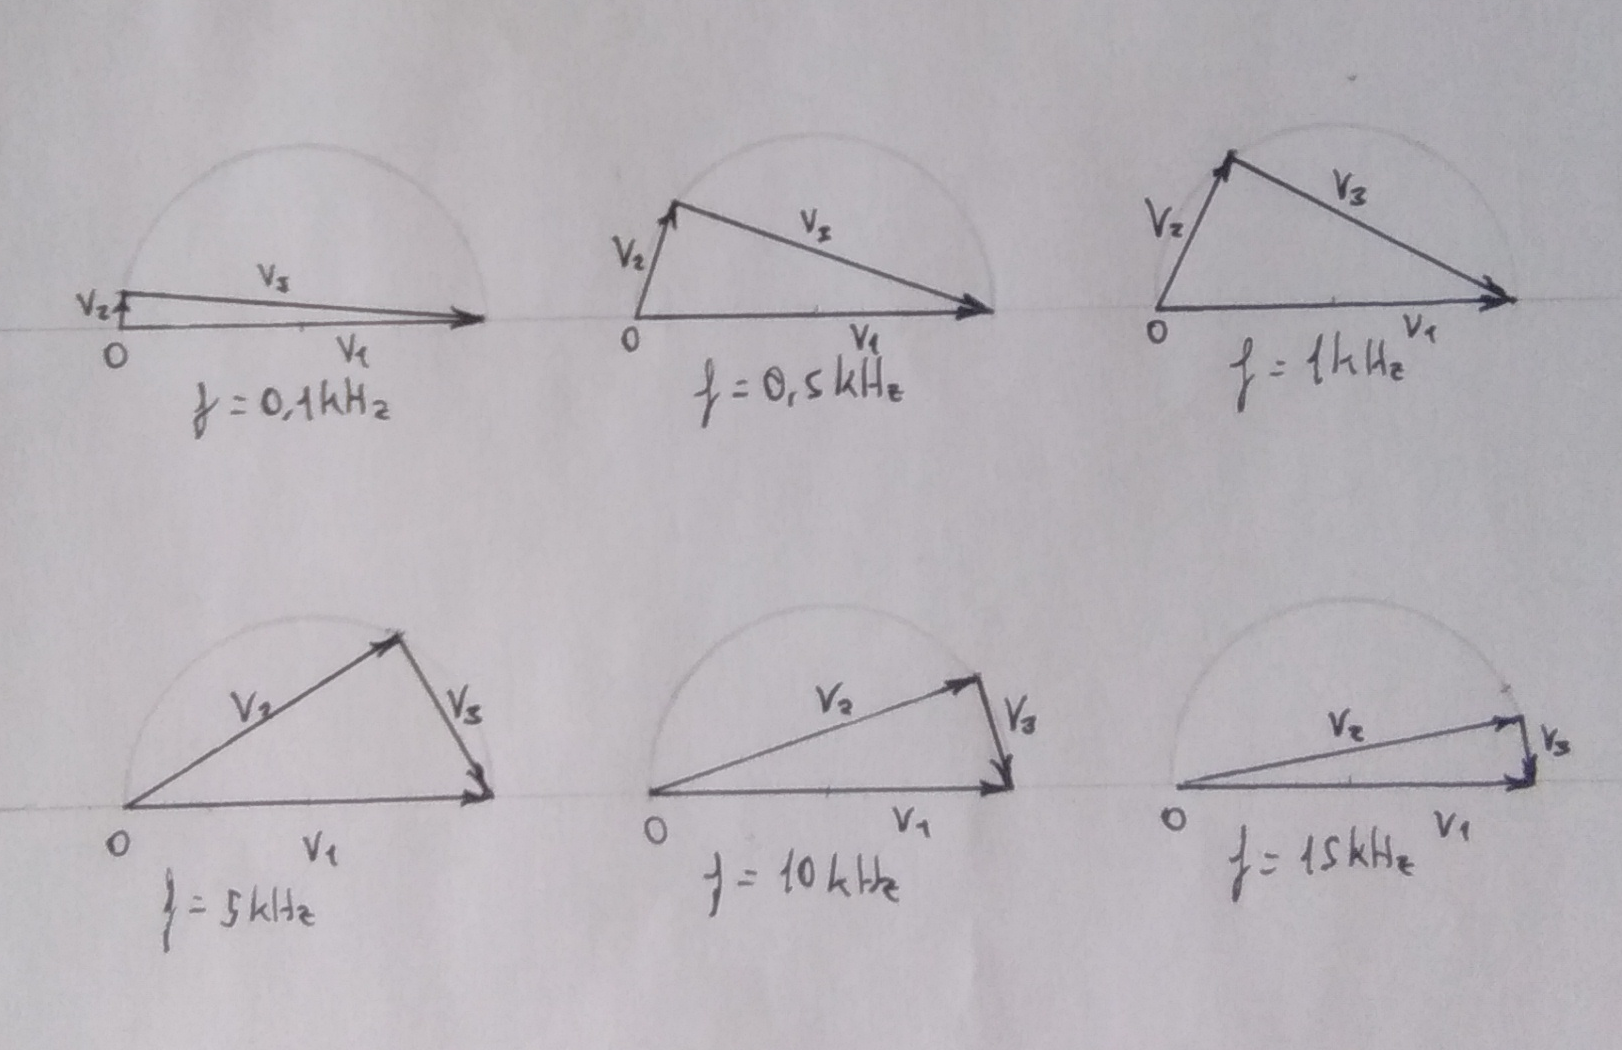 V₂ V₃
0 V₁
f = 0,1kHz
V₂ V₃
0 V₁
f = 0,5kHz
V₂ V₃
0 V₁
f = 1kHz
V₂ V₃
0 V₁
f = 5kHz
V₂ V₃
0 V₁
f = 10kHz
V₂ V₃
0 V₁
f = 15kHz